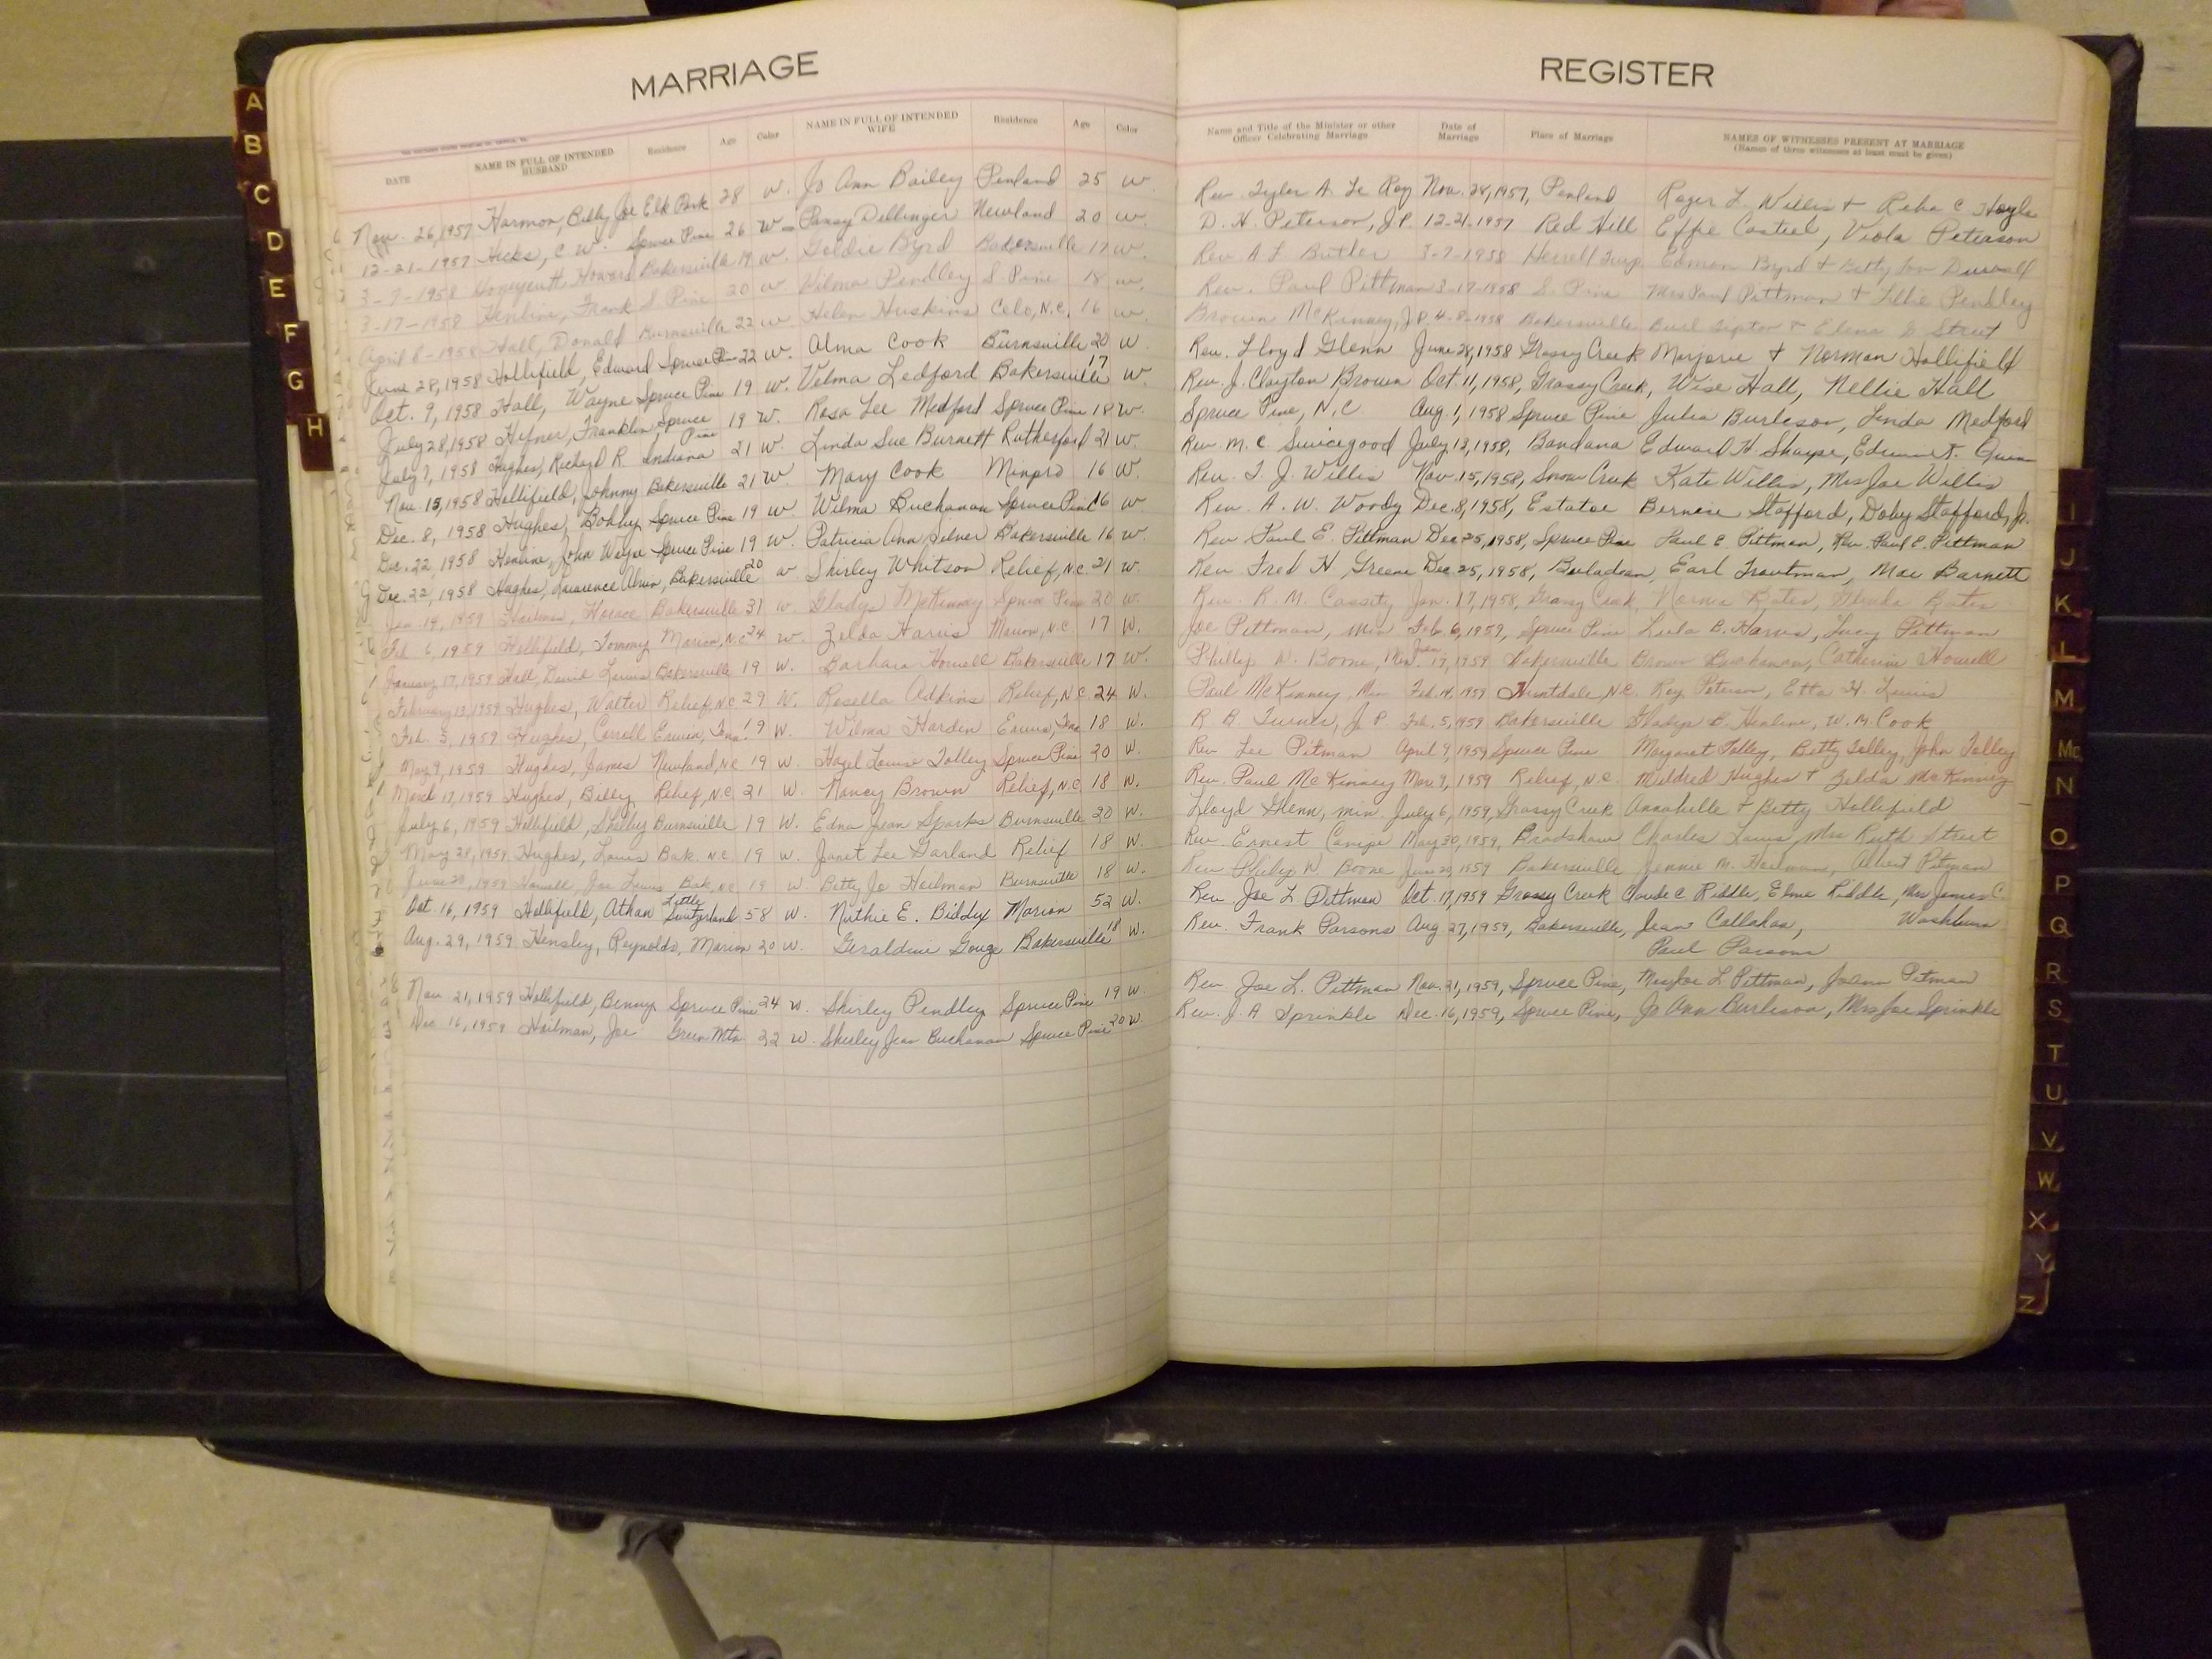 MARRIAGE
DATE NAME IN FULL OF INTENDED HUSBAND Residence Age Color NAME IN FULL OF INTENDED WIFE Residence Age Color
Nov. 26, 1957 Harmon, Billy Joe Elk Park 28 W. Jo Ann Bailey Penland 25 W
12-21-1957 Hicks, C. W. Spruce Pine 26 W Pansy Dellinger Newland 20 W.
3-7-1958 Honeycutt, Howard Bakersville 19 W. Goldie Byrd Bakersville 17 W.
3-17-1958 Henline, Frank S. Pine 20 W Vilma Pendley S. Pine 18 W.
April 8-1958 Hall, Donald Burnsville 22 W Helen Huskins Celo, N.C. 16 W.
June 28, 1958 Hollifield, Edward Spruce Pine 22 W. Alma Cook Burnsville 20 W
Oct. 9, 1958 Hall, Wayne Spruce Pine 19 W. Velma Ledford Bakersville 17 W.
July 28, 1958 Hefner, Franklin, Spruce Pine 19 W. Rosa Lee Medford Spruce Pine 18 W.
July 7, 1958 Hughes, Richard R. Indiana 21 W. Linda Sue Burnett Rutherford 21 W.
Nov. 15, 1958 Hollifield, Johnny Bakersville 21 W. Mary Cook Minpro 16 W.
Dec. 8, 1958 Hughes, Bobby Spruce Pine 19 W. Wilma Buchanan Spruce Pine 16 W
Dec. 22, 1958 Henline, John Wayne Spruce Pine 19 W. Patricia Ann Bakersville 16 W.
Dec. 22, 1958 Hughes, Bakersville 20 W Shirley Whitson Relief, N.C. 21 W.
Jan. 14, 1959 Horace Bakersville 31 W Gladys McKinney Spruce Pine 20 W.
Feb. 6, 1959 Hollifield, Tommy Marion, N.C. 24 W. Zelda Harris Marion, N.C. 17 W.
January 17, 1959 Hall, David Bakersville 19 W. Barbara Howell Bakersville 17 W.
February 13, 1959 Hughes, Walter Relief, N.C. 29 W. Rosella Adkins Relief, N.C. 24 W.
Feb. 5, 1959 Hughes, Carroll Erwin, Tenn. 19 W. Wilma Hardin Erwin, Tenn 18 W.
May 9, 1959 Hughes, James Newland, N.C. 19 W. Hazel Louise Tolley Spruce Pine 20 W.
March 17, 1959 Hughes, Billy Relief, N.C. 21 W. Nancy Brown Relief, N.C. 18 W.
July 6, 1959 Hollifield, Shelby Burnsville 19 W. Edna Jean Sparks Burnsville 20 W.
May 28, 1959 Hughes, Louis Bak. N.C. 19 W. Janet Lee Garland Relief 18 W.
June 20, 1959 Howell, Joe Lewis Bak, N.C. 19 W. Betty Jo Heilman Burnsville 18 W.
Oct 16, 1959 Hollifield, Athan Little Switzerland 58 W. Nuthie E. Biddix Marion 52 W.
Aug. 29, 1959 Hensley, Reynolds, Marion 20 W. Geraldine Gouge Bakersville 18 W.
Nov. 21, 1959 Hollifield, Benny Spruce Pine 24 W. Shirley Pendley Spruce Pine 19 W
Dec 16, 1959 Heilman, Joe Green Mtn. 22 W. Shirley Jean Buchanan Spruce Pine 20 W.
REGISTER
Name and Title of the Minister or other Officer Celebrating Marriage Date of Marriage Place of Marriage NAMES OF WITNESSES PRESENT AT MARRIAGE
(Names of three witnesses at least must be given)
Rev. Tyler A. Le Roy Nov. 28, 1957, Penland Roger L. Willis & Reba C. Hoyle
D. H. Peterson, J.P. 12-21-1957 Red Hill Effie Casteel, Viola Peterson
Rev. A. F. Butler 3-7-1958 Herrell Twp. Edmon Byrd & Betty Lou
Rev. Paul Pittman 3-17-1958 S. Pine Mrs Paul Pittman & Lillie Pendley
Brown McKinney, J.P. 4-8-1958 Bakersville & Elma G. Street
Rev. Lloyd Glenn June 28, 1958 Grassy Creek Marjorie & Norman Hollifield
Rev. J. Clayton Brown Oct. 11, 1958, Grassy Creek, Wise Hall, Nellie Hall
Spruce Pine, N.C Aug. 1, 1958 Spruce Pine Julia Burleson, Linda Medford
Rev. M. C. Swicegood July 13, 1958, Bandana Edward H. Sharpe,
Rev. T. J. Willis Nov. 15, 1958, Snow Creek Kate Willis, Mrs Joe Willis
Rev. A. W. Woody Dec. 8, 1958, Estatoe Bernice Stafford, Doby Stafford, Jr.
Rev Paul E. Pittman Dec 25, 1958, Spruce Pine Paul E. Pittman, Rev. Paul E. Pittman
Rev Fred H. Greene Dec 25, 1958, Buladean, Earl Troutman, Mae Barnett
Rev. R. M. Cassity Jan. 17, 1958, Grassy Creek, Norma Bates, Glenda Bates
Joe Pittman, Min Feb. 6, 1959, Spruce Pine Lula B. Harris, Lucy Pittman
Phillip N. Boone, Min. Jan 17, 1959 Bakersville Brown Buchanan, Catherine Howell
Paul McKinney, Min Feb. 14, 1959 Huntdale, N.C. Roy Peterson, Etta H. Lewis
R. B. Turner, J. P. Feb. 5, 1959 Bakersville Gladys B. Henline, W. M. Cook
Rev Lee Pitman April 9, 1959 Spruce Pine Margaret Tolley, Betty Tolley, John Tolley
Rev. Paul McKinney Mar 9, 1959 Relief, N.C. Mildred Hughes & Zelda McKinney
Lloyd Glenn, min July 6, 1959, Grassy Creek Annabelle & Betty Hollifield
Rev. Ernest Canipe May 30, 1959, Bradshaw Charles Lewis, Mrs Ruth Street
Rev Philip N. Boone June 20, 1959 Bakersville Jennie M. Heilman, Albert Pitman
Rev Joe L Pittman Oct. 17, 1959 Grassy Creek Claude C. Riddle, Elma Riddle, Mrs James C. Washburn
Rev. Frank Parsons Aug. 27, 1959, Bakersville, Jean Callahan,
Paul Parsons
Rev. Joe L. Pittman Nov. 21, 1959, Spruce Pine, Mrs Joe L Pittman, JoAnn Pitman
Rev. J. A Sprinkle Dec. 16, 1959, Spruce Pine, Jo Ann Burleson, Mrs Joe Sprinkle
A
B
C
D
E
F
G
H
I
J
K
L
M
Mc
N
O
P
Q
R
S
T
U
V
W
X
Y
Z